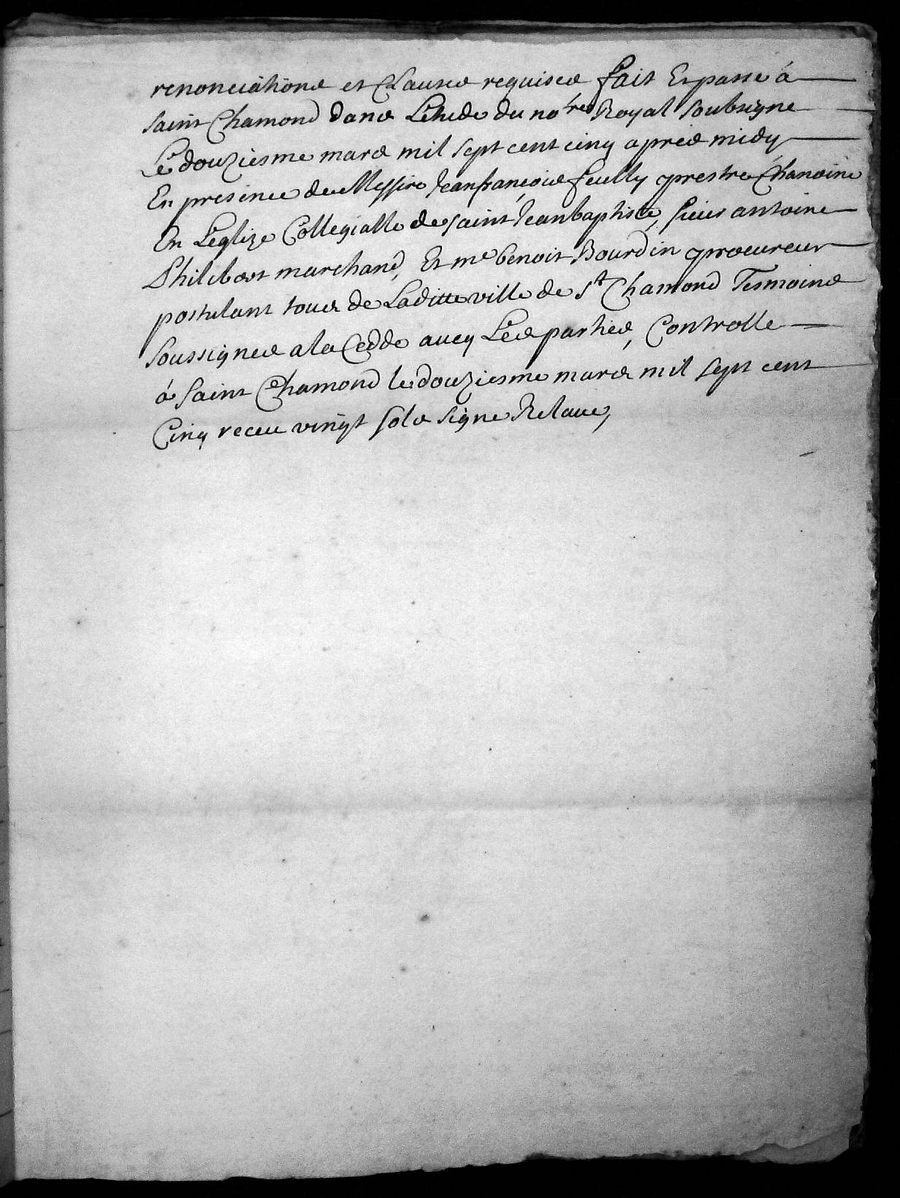 renonciations et Clauses requises fait Et passé à
saint Chamond dans L'etude du no.re Royal soubsigne
Le douziesme mars mil sept cent cinq apres midy
En presence de Messire Jean françois feully prestre Chanoine
En L'eglize Collegialle de saint Jean baptiste, sieur antoine
Philibert marchand, Et me benoit Bourdin procureur
postulant tous de Laditte ville de st Chamond Tesmoins
soussignes a la Cedde avecq Les parties, Controlle
à Saint Chamond le douziesme mars mil sept cent
Cinq receu vingt sols signe Relave,